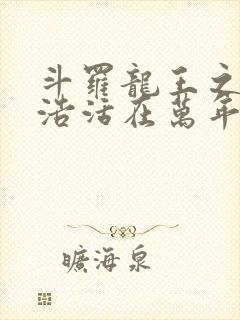 斗羅龍王之
浩活在萬年
曠海泉